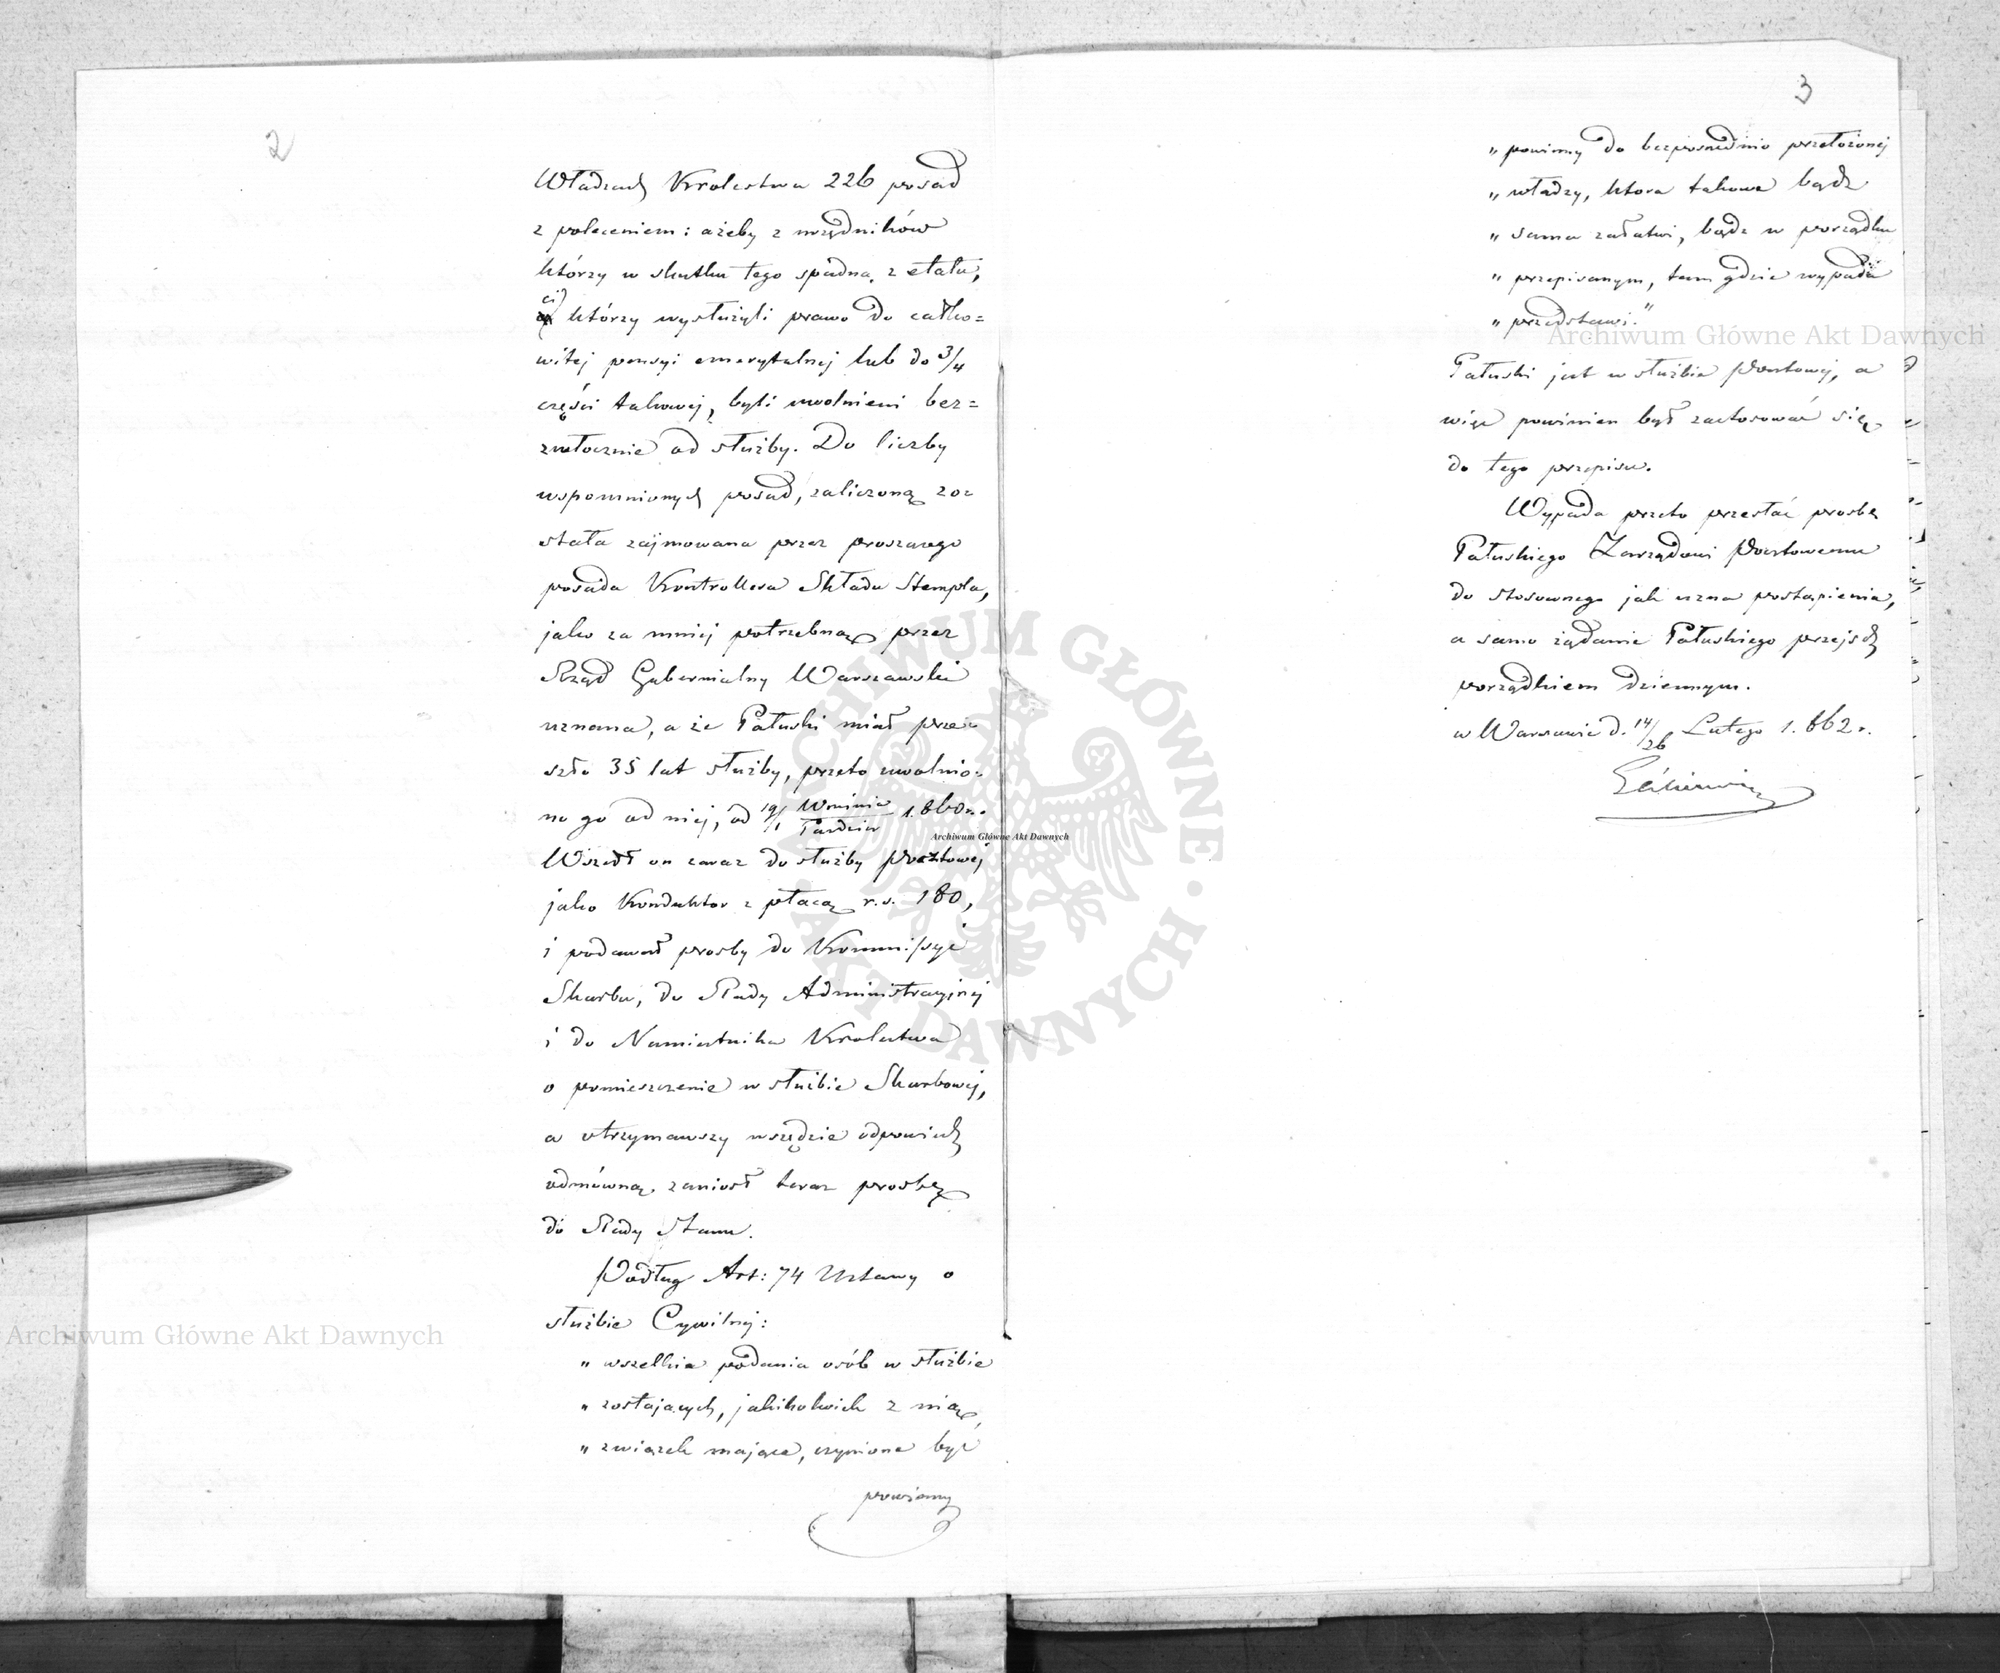 2
Władzach Krolestwa 226 posad
z poleceniem: ażeby z urzędników
którzy w skutku tego spadną z etatu,
ci którzy wysłużyli prawo do całko=
witej pensyi emerytalnej lub do 3/4
części takowej, byli uwolnieni bez=
zwłocznie od służby. Do liczby
wspomnionych posad, zaliczoną zo=
stała zajmowana przez proszącego
posada Kontrollera Składu Stempla,
jako za mniej potrzebną przez
Rząd Gubernialny Warszawski
uznana, a że Pałuski miał prze=
szło 35 lat służby, przeto uwolnio=
no go od niej, od 19/1 Września/Paździer 1.860 r.
Wszedł on zaraz do służby Pocztowej
jako Konduktor z płacą r.s. 180,
i podawał prośby do Kommissyi
Skarbu, do Rady Administracyjnej
i do Namiestnika Krolestwa
o pomieszczenie w służbie Skarbowej,
a otrzymawszy wszędzie odpowiedź
odmówną, zaniosł teraz prosbę
do Rady Stanu.
Podług Art: 74 Ustawy o
służbie Cywilnej:
„ wszelkie podania osób w służbie
„ zostających, jakikolwiek z nią,
„ związek mające, czynione być
powinny
3
„ powinny do bezpośrednio przełożonej
„ władzy, ktora takowe bądź
„ sama załatwi, bądź w porządku
„ przepisanym, tam gdzie wypada
„ przedstawi."
Pałuski jest w służbie Pocztowej, a
więc powinien był zastosować się
do tego przepisu.
Wypada przeto przesłać prosbę
Pałuskiego Zarządowi Pocztowemu
do stosownego jak uzna postąpienia,
a samo żądanie Pałuskiego przejść
porządkiem dziennym.
w Warszawie d. 14/26 Lutego 1.862 r.
Archiwum Główne Akt Dawnych
Archiwum Główne Akt Dawnych
Archiwum Główne Akt Dawnych
ARCHIWUM GŁÓWNE
AKT DAWNYCH